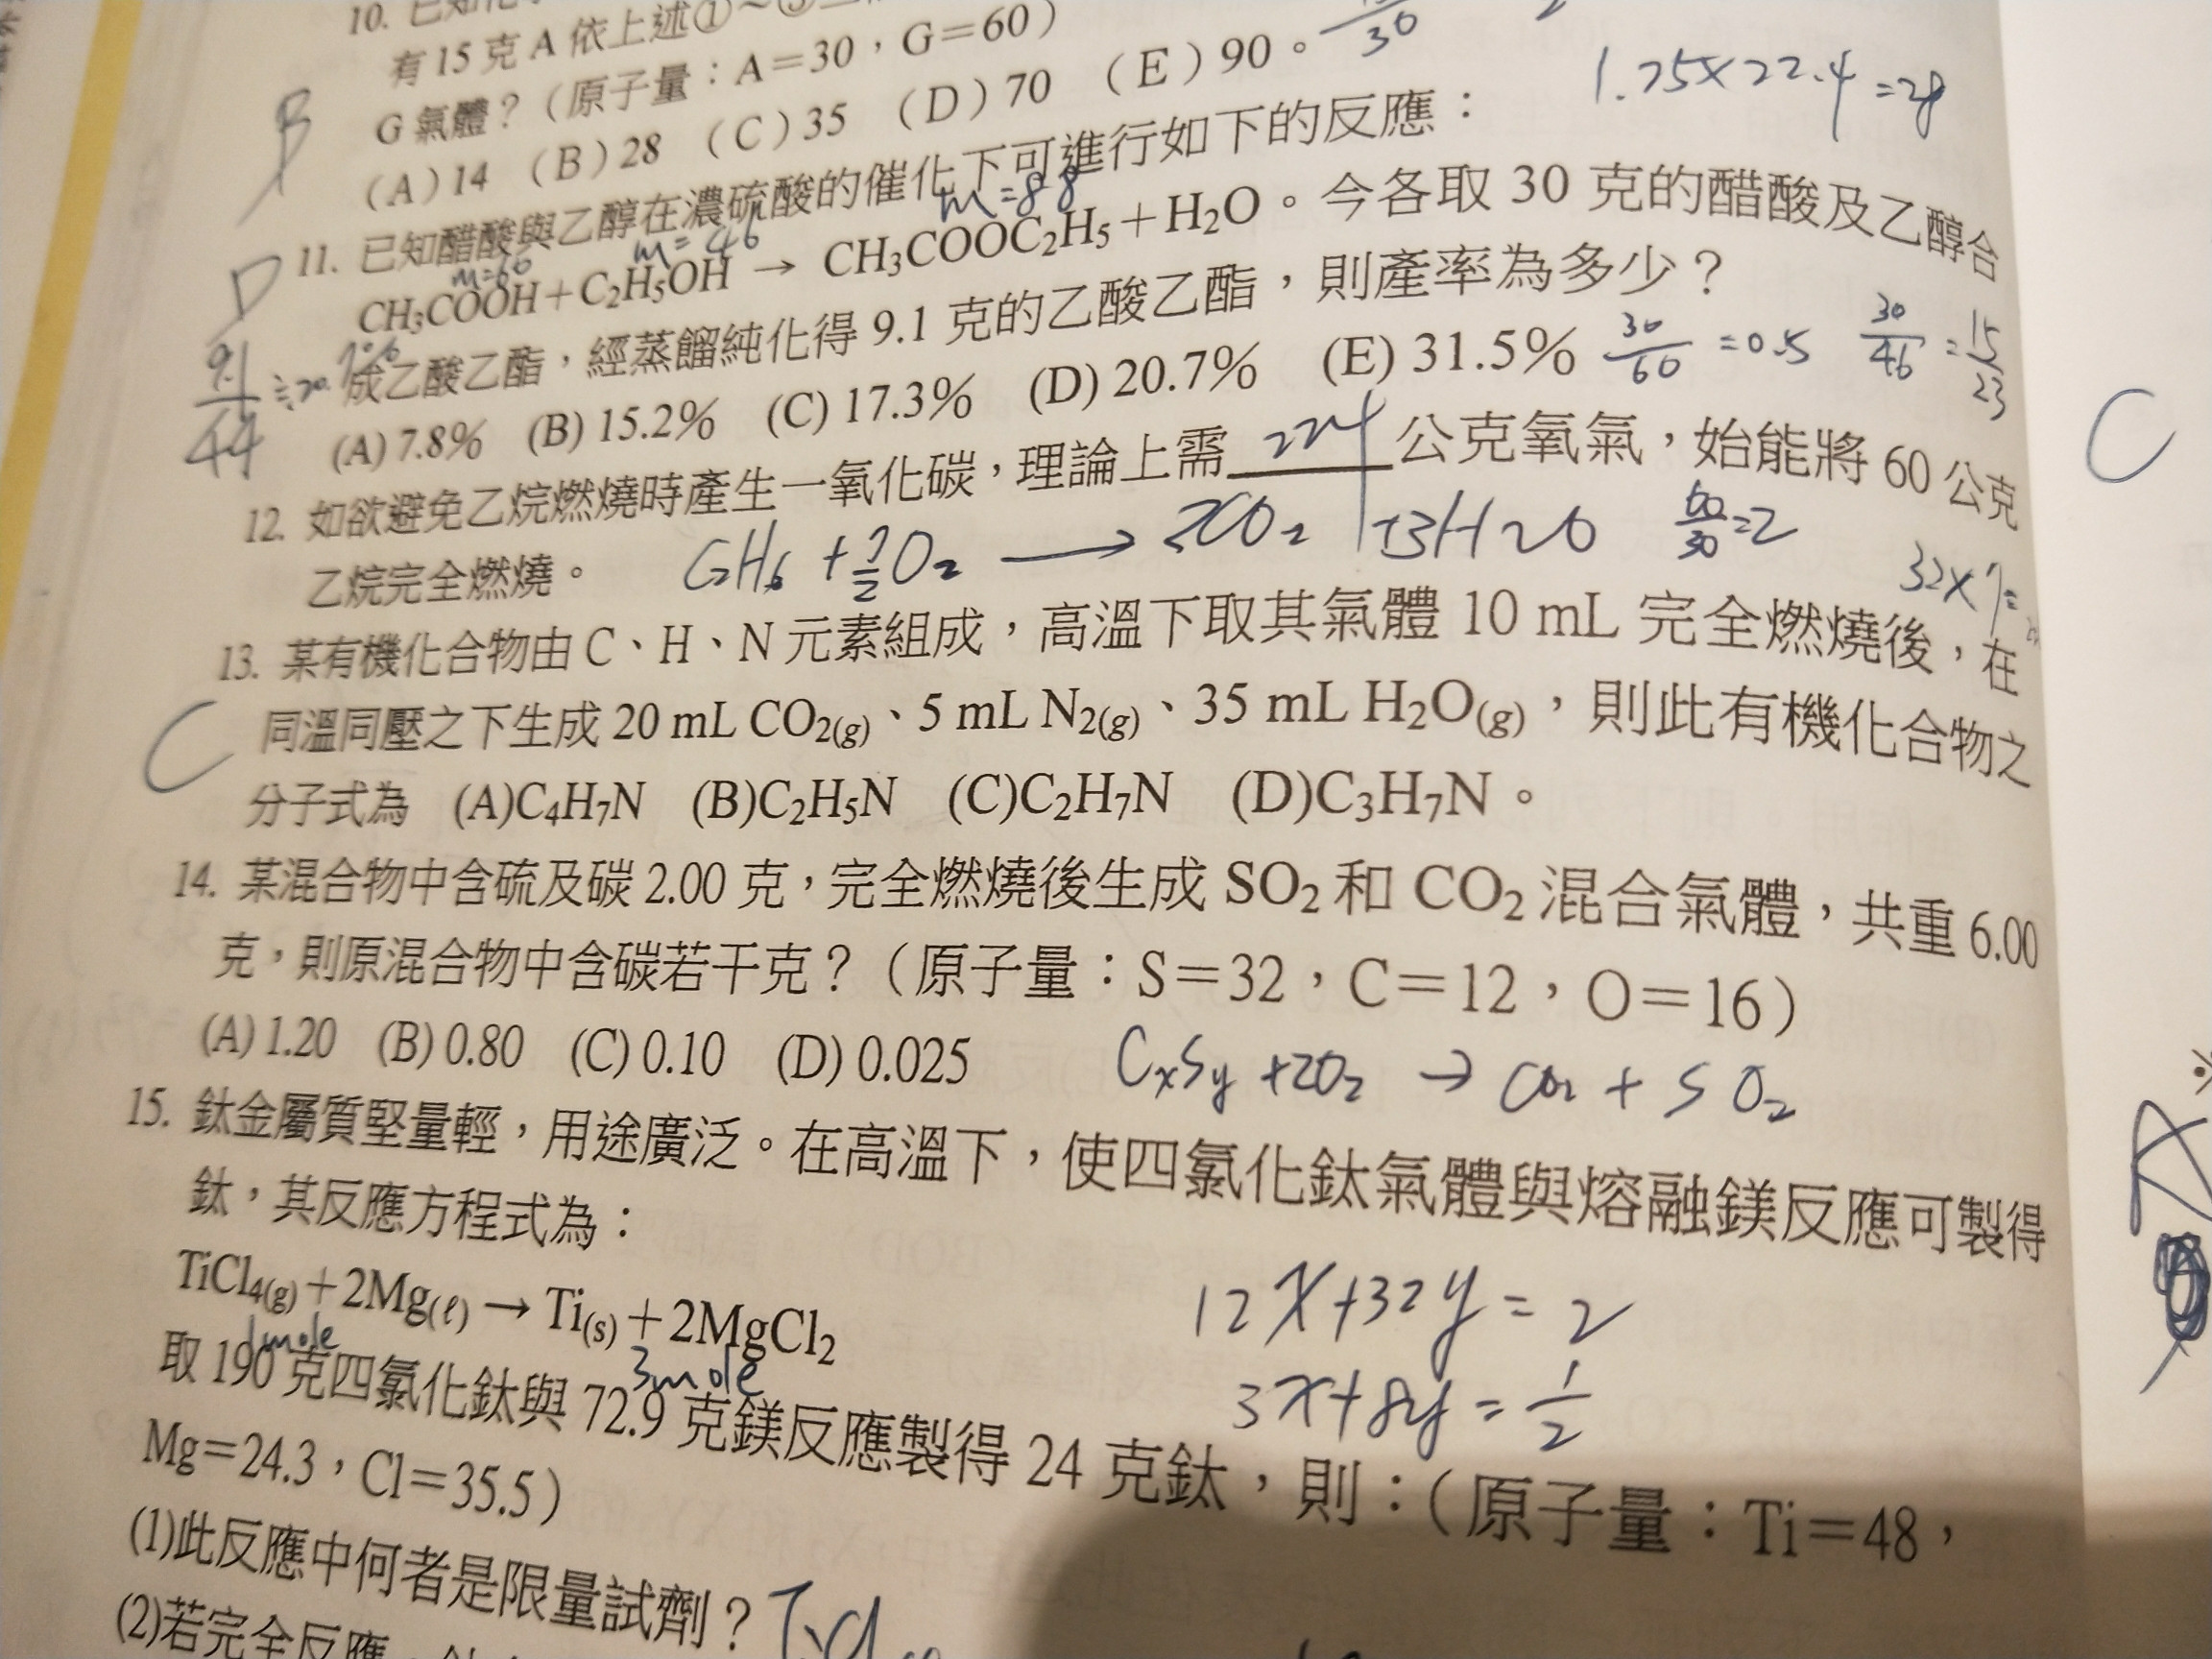 有15克A依上述①~
G氣體？（原子量：A＝30，G＝60）
(A)14 (B)28 (C)35 (D)70 (E)90。
30
1.25×22.4=28
B
11. 已知醋酸與乙醇在濃硫酸的催化下可進行如下的反應：
m=60 m=46 m=88
CH₃COOH＋C₂H₅OH → CH₃COOC₂H₅＋H₂O。今各取 30 克的醋酸及乙醇合
成乙酸乙酯，經蒸餾純化得 9.1 克的乙酸乙酯，則產率為多少？
(A) 7.8% (B) 15.2% (C) 17.3% (D) 20.7% (E) 31.5%
30/60 =0.5 30/46 = 15/23
D
9.1/44
12. 如欲避免乙烷燃燒時產生一氧化碳，理論上需 224 公克氧氣，始能將 60 公克
乙烷完全燃燒。
C₂H₆ + 7/2 O₂ → 2CO₂ + 3H₂O 60/30=2
32×7=
13. 某有機化合物由 C、H、N 元素組成，高溫下取其氣體 10 mL 完全燃燒後，在
同溫同壓之下生成 20 mL CO₂(g)、5 mL N₂(g)、35 mL H₂O(g)，則此有機化合物之
分子式為 (A)C₄H₇N (B)C₂H₅N (C)C₂H₇N (D)C₃H₇N。
C
14. 某混合物中含硫及碳 2.00 克，完全燃燒後生成 SO₂ 和 CO₂ 混合氣體，共重 6.00
克，則原混合物中含碳若干克？（原子量：S＝32，C＝12，O＝16）
(A) 1.20 (B) 0.80 (C) 0.10 (D) 0.025
CxSy +2O₂ → CO₂ + SO₂
15. 鈦金屬質堅量輕，用途廣泛。在高溫下，使四氯化鈦氣體與熔融鎂反應可製得
鈦，其反應方程式為：
TiCl₄(g)＋2Mg(ℓ) → Ti(s)＋2MgCl₂
12x+32y=2
3x+8y=1/2
1mole 3mole
取 190 克四氯化鈦與 72.9 克鎂反應製得 24 克鈦，則：（原子量：Ti＝48，
Mg＝24.3，Cl＝35.5）
(1)此反應中何者是限量試劑？
(2)若完全反應，
C
A